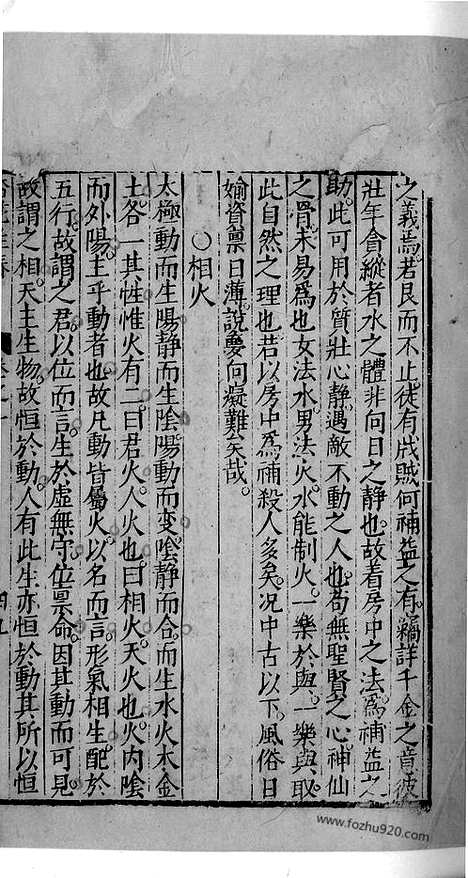 之義焉若艮而不止徒有戕賊何補益之有竊詳千金之意彼
壯年貪縱者水之體非向日之靜也故着房中之法爲補益之
助此可用於質壯心靜遇敵不動之人也苟無聖賢之心神仙
之骨未易爲也女法水男法火水能制火一樂於與一樂與取
此自然之理也若以房中爲補殺人多矣况中古以下風俗日
媮資禀日薄說夢向癡難矣哉
○相火
太極動而生陽靜而生陰陽動而变陰靜而合而生水火木金
土各一其性惟火有二曰君火人火也曰相火天火也火內陰
而外陽主乎動者也故凡動皆屬火以名而言形氣相生配於
五行故謂之君以位而言生於虛無守位禀命因其動而可見
故謂之相天主生物故恒於動人有此生亦恒於動其所以恒
www.fozhu920.com